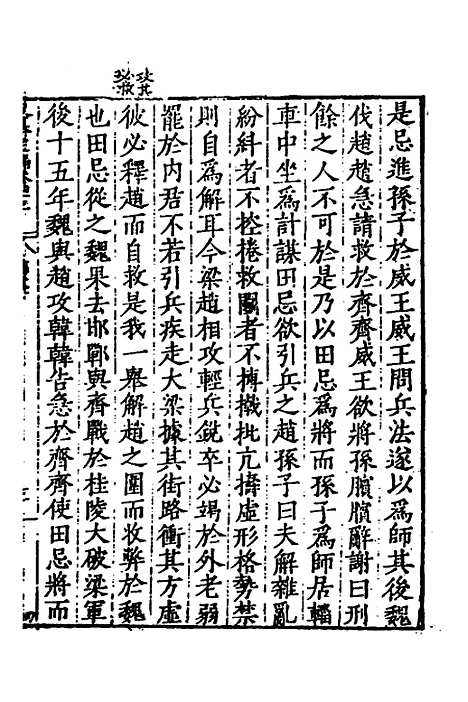 是忌進孫子於威王威王問兵法遂以爲師其後魏
伐趙趙急請救於齊齊威王欲將孫臏臏辭謝曰刑
餘之人不可於是乃以田忌爲將而孫子爲師居輜
車中坐爲計謀田忌欲引兵之趙孫子曰夫解雜亂
紛糾者不控捲救鬭者不搏撠批亢擣虛形格勢禁
則自爲解耳今梁趙相攻輕兵銳卒必竭於外老弱
罷於内君不若引兵疾走大梁據其街路衝其方虛
彼必釋趙而自救是我一舉解趙之圍而收弊於魏
也田忌從之魏果去邯鄲與齊戰於桂陵大破梁軍
後十五年魏與趙攻韓韓告急於齊齊使田忌將而